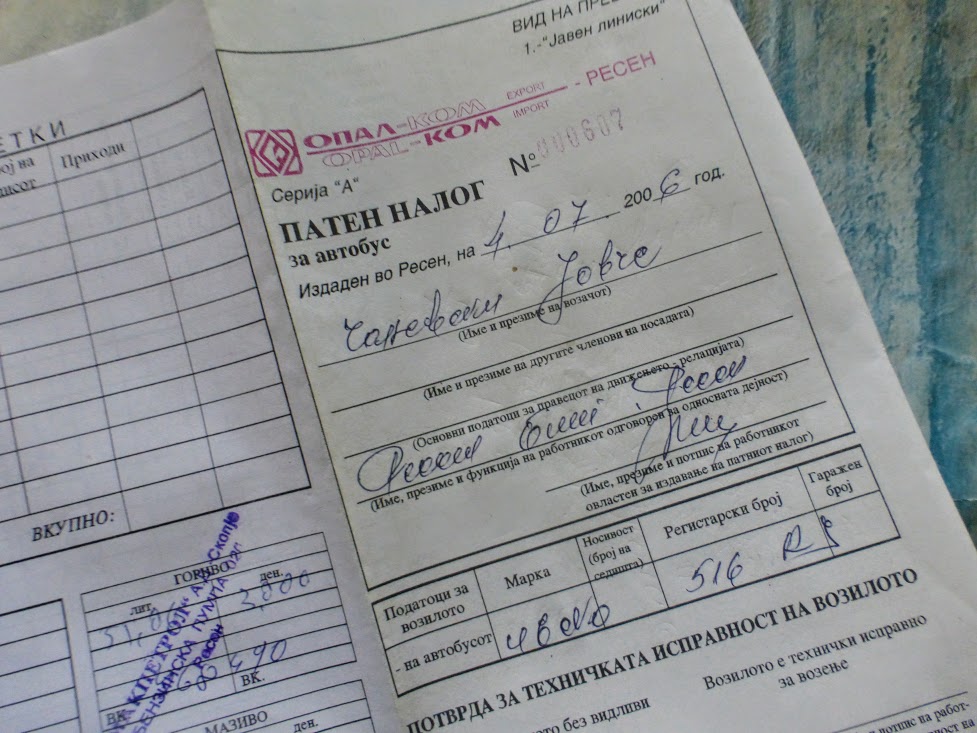 ЕТКИ
ој на
Приходи
ВКУПНО:
ГОРИВО
лит.
ден.
2,000
490
ВК.
ВК.
МАЗИВО
ден.
МАКПЕТРОЛ" А.Д. Скопје
БЕНЗИНСКА ПУМПА
Ресен
ВИД НА ПРЕ
1.-"Јавен линиски"
ОПАЛ-КОМ EXPORT - РЕСЕН
OPAL-KOM IMPORT
Серија "А"
№ 000607
ПАТЕН НАЛОГ
за автобус
Издаден во Ресен, на 4. 07. 2006 год.
Јовче
(Име и презиме на возачот)
(Име и презиме на другите членови на посадата)
(Основни податоци за правецот на движењето - релацијата)
Ресен Ресен
(Име, презиме и функција на работникот одговорен за односната дејност)
(Име, презиме и потпис на работникот
овластен за издавање на патниот налог)
Податоци за
возилото
Марка
Носивост
(број на
седишта)
Регистарски број
Гаражен
број
- на автобусот
516
ПОТВРДА ЗА ТЕХНИЧКАТА ИСПРАВНОСТ НА ВОЗИЛОТО
ото без видливи
Возилото е технички исправно
за возење